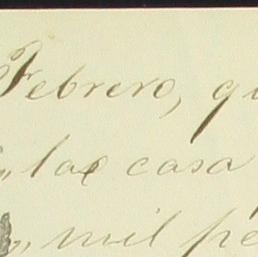 Febrero, qu
„ las casa
„ mil pe